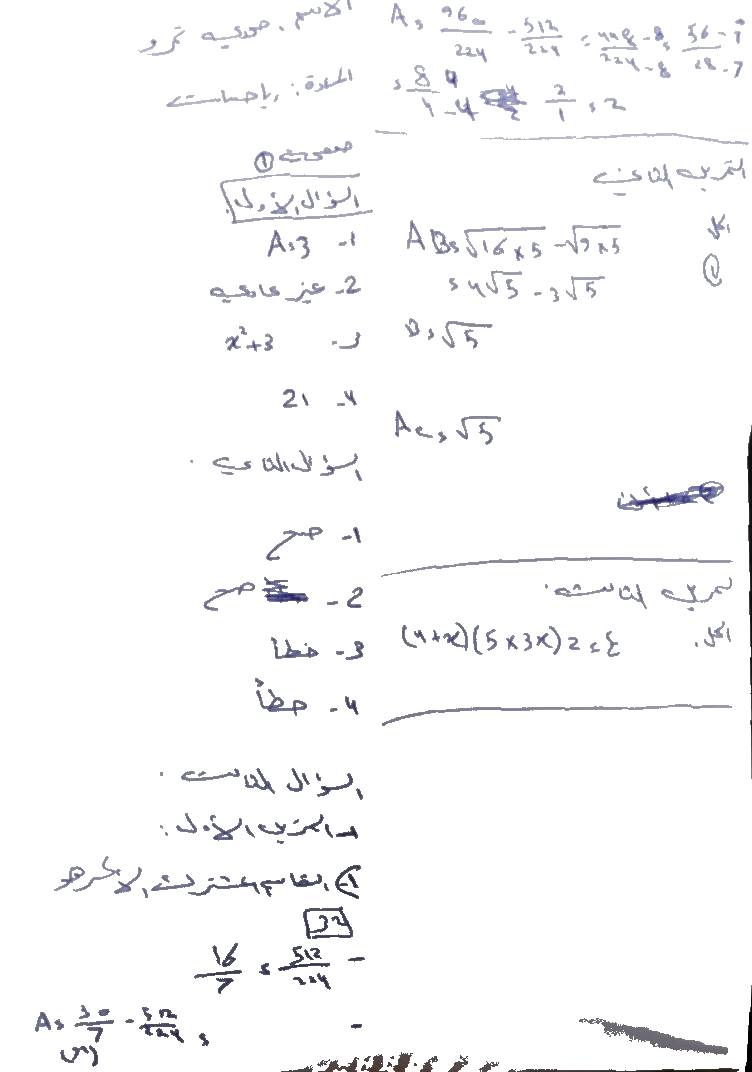 الاسم:
المادة: رياضيات
صفحة ①
السؤال الأول:
1- A=3
2- غير عادية
3- x²+3
4- 21
السؤال الثاني:
1- صح
2- صح
3- خطأ
4- خطأ
السؤال الثالث:
التمرين الأول:
1- القاسم المشترك الأكبر هو
32
- 512/224 = 16/7
- A= 30/7 - 512/224 =
A= 960/224 - 512/224 = 448÷8/224÷8 = 56÷7/28÷7
= 8÷4/4÷4 = 2/1 = 2
التمرين الثاني
الحل
① AB= √16×5 - √9×5
= 4√5 - 3√5
B= √5
AC= √5
تمرين الثالث:
الحل: (4+x)(5×3x)2=ع